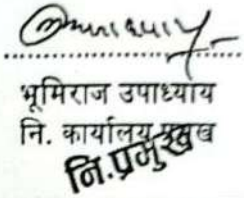 भूमिराज उपाध्याय
नि. कार्यालय प्रमुख
नि.प्रमुख